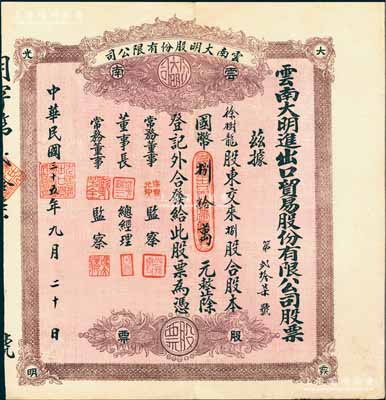 雲南大明股份有限公司
雲南
大
光
雲南大明進出口貿易股份有限公司股票
第貳拾柒號
茲據
徐樹龍股東交來捌股合股本
國幣捌拾萬元整除
登記外合發給此股票為憑
董事長
總經理
常務董事
監察
常務董事
監察
中華民國三十五年九月二十日
股票
明